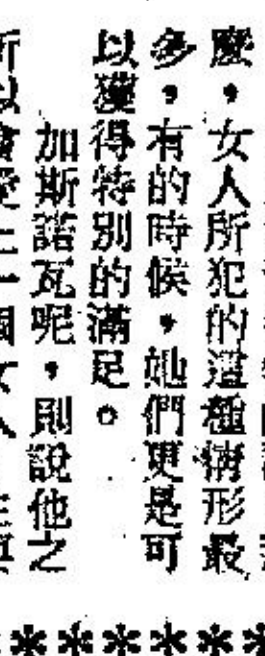 麼，女人所犯的這種情形最
多，有的時候，她們更是可
以獲得特別的滿足。
加斯諾瓦呢，則說他之
所以會愛上一個女人
******